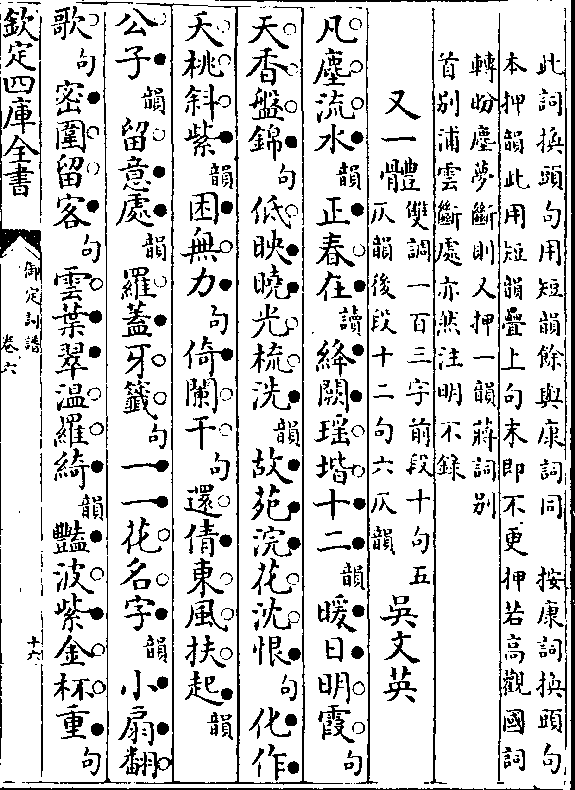 此詞換頭句用短韻餘與康詞同　按康詞換頭句
本押韻此用短韻疊上句末即不更押若高觀國詞
轉盼塵夢斷則又押一韻蔣詞別
首別浦雲斷處亦然注明不錄
又一體
雙調一百三字前段十句五
仄韻後段十二句六仄韻
吳文英
凡塵流水韻正春在讀絳闕瑶堦十二韻暖日明霞句
天香盤錦句低映曉光梳洗韻故苑浣花沈恨句化作
夭桃斜紫韻困無力句倚闌干句還倩東風扶起韻
公子韻留意處韻羅蓋牙籖句一一花名字韻小扇翻
歌句密圍留客句雲葉翠溫羅綺韻豔波紫金杯重句
欽定四庫全書
御定詞譜
卷六
十六